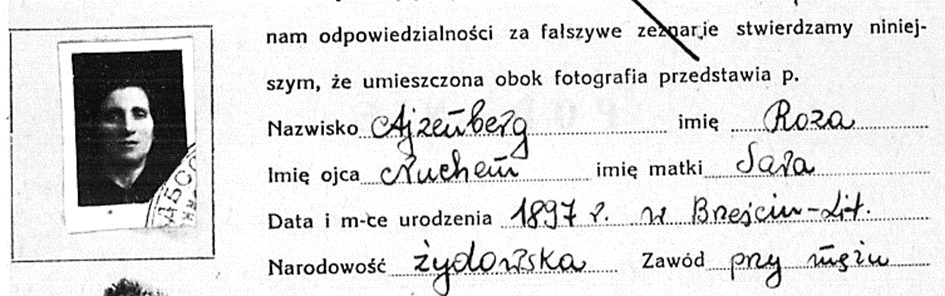 nam odpowiedzialności za fałszywe zeznanie stwierdzamy niniej-
szym, że umieszczona obok fotografia przedstawia p.
Nazwisko Ajzenberg imię Roza
Imię ojca Nuchem imię matki Sara
Data i m-ce urodzenia 1897 r. w Brześciu-Lit.
Narodowość żydowska Zawód przy mężu